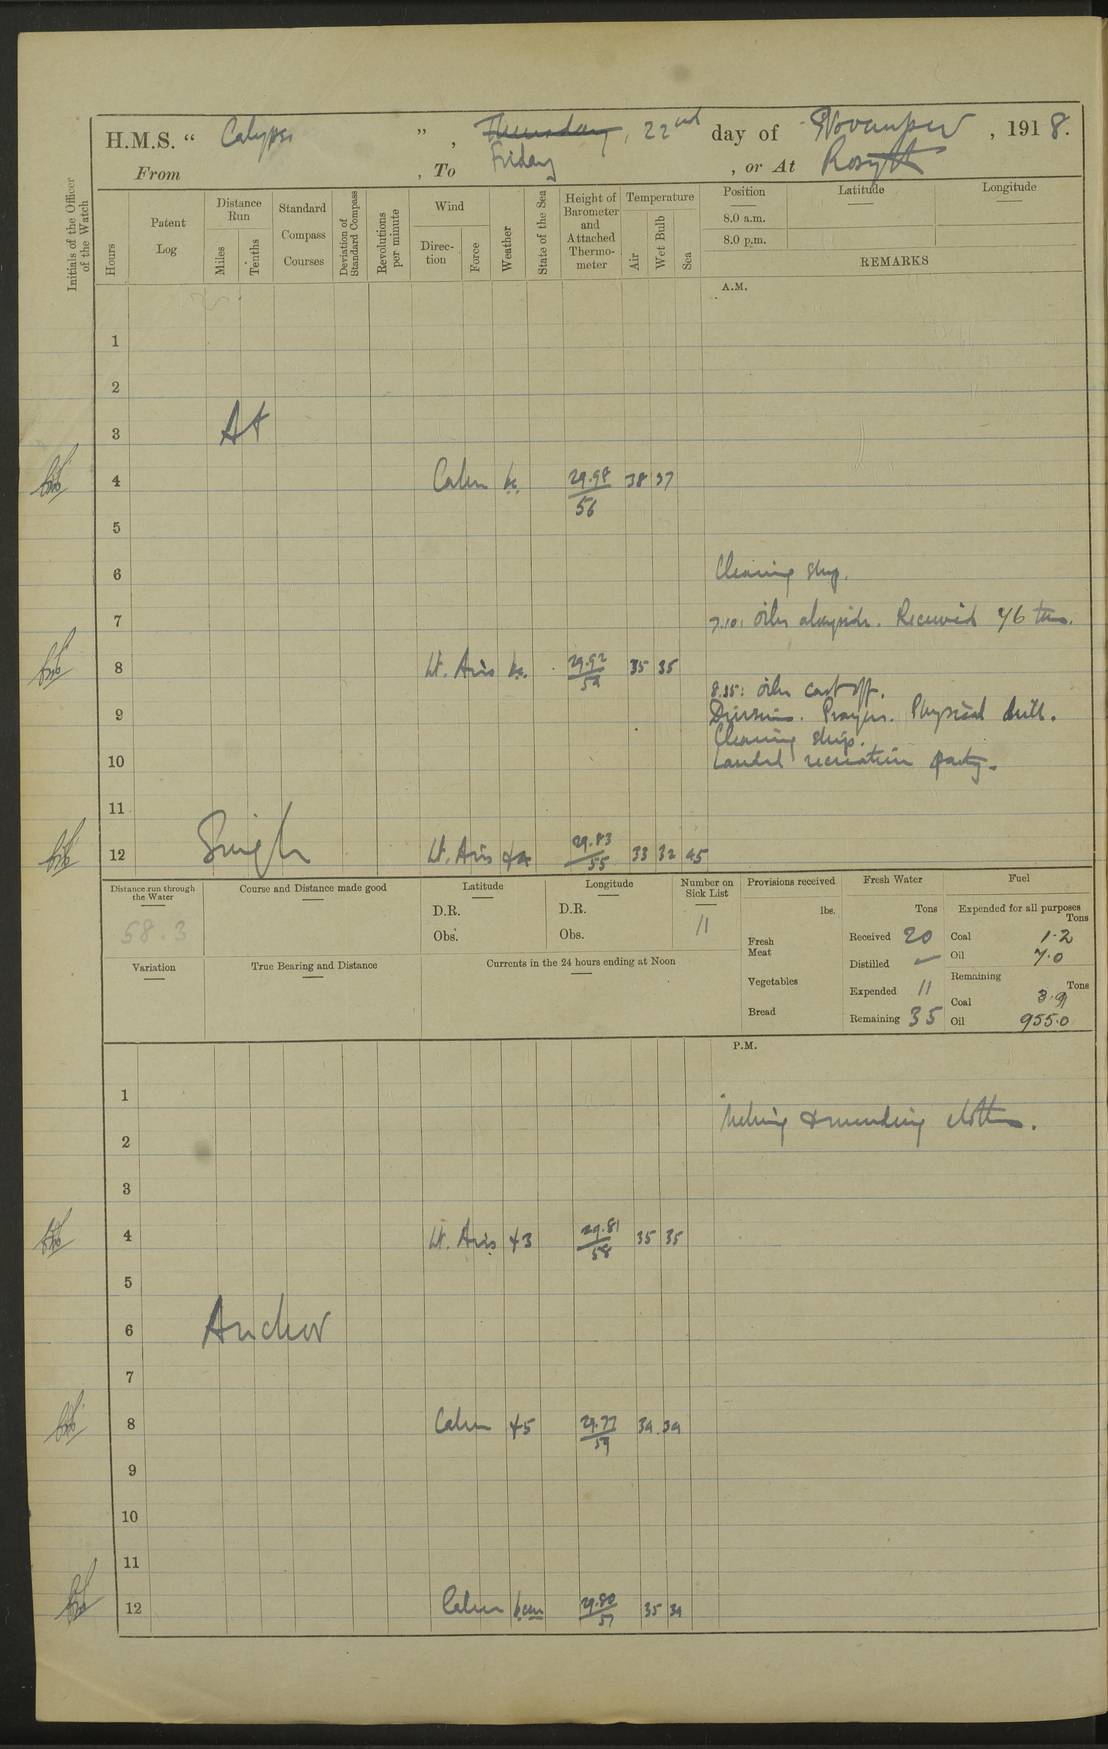 H.M.S. “ Calypso ” , Thursday , 22nd day of November , 1918.
Friday
From , To , or At Rosyth
Initials of the Officer of the Watch
Hours
Patent Log
Distance Run
Miles
Tenths
Standard Compass Courses
Deviation of Standard Compass
Revolutions per minute
Wind
Direction
Force
Weather
State of the Sea
Height of Barometer and Attached Thermometer
Temperature
Air
Wet Bulb
Sea
Position Latitude Longitude
8.0 a.m.
8.0 p.m.
REMARKS
A.M.
1
2
3 At
4 Calm 29.98 38 37
56
5
6 Cleaning ship.
7 7.10: oiler alongside. Received 76 tons.
8 Lt. Airs 29.92 35 35
8.35: oiler cast off.
9 Divisions. Prayers. Physical drill.
Cleaning ship.
10 Landed recreation party.
11
12 Single Lt. Airs 29.83 33 32 45
55
Distance run through the Water
58.3
Course and Distance made good
Latitude
D.R.
Obs.
Longitude
D.R.
Obs.
Number on Sick List
11
Provisions received
lbs.
Fresh Meat
Vegetables
Bread
Fresh Water
Tons
Received 20
Distilled —
Expended 11
Remaining 35
Fuel
Expended for all purposes
Tons
Coal 1.2
Oil 7.0
Remaining
Tons
Coal 3.9
Oil 955.0
Variation
True Bearing and Distance
Currents in the 24 hours ending at Noon
P.M.
1
Making & mending clothes.
2
3
4 Lt. Airs 29.81 35 35
58
5
6 Anchor
7
8 Calm 29.77 34 34
59
9
10
11
12 Calm 29.80 35 34
57